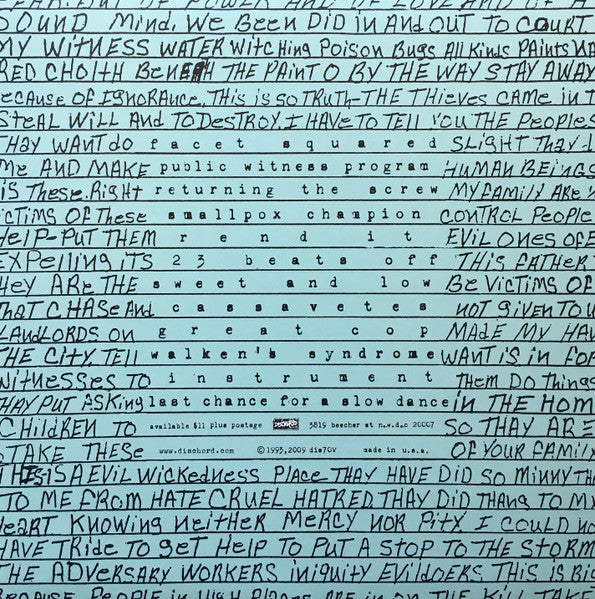 SOUND Mind. WE BEEN DiD in And OUT TO COURT.
MY WiTNESS WATER WiTCHing POiSON BUgs All Kinds PAinTS
RED CHOiTH THE PAinT O BY THE WAY STAY AWAY
ECAUSE OF IgnORAnce. THis is SO TRUTH-THE THiEVES CAME in T
STEAL WiLL And TO DESTROY. I HAVE TO TEll YOU THE PEOPLES
THAY WANT do facet squared SLigHT THAY
ME AND MAKE public witness program HUMAN BEingS
iS THESE. RigHT returning the screw MY FAMiLY ARE
iCTiMS OF THESE smallpox champion CONTROL PEOPLE
HElP-PUT THEM rend it EViL ONES OF E
EXPElling iTS 23 beats off THiS FATHER
HEY ARE THE sweet and low BE ViCTiMS OF
THAT CHASE And cassavetes nOT giVEn TO U
LANdLORDS On great cop MADE MY HAV
THE CiTY. TEll walken's syndrome WANT iS in FOR
WiTNESSES TO instrument THEM DO THings
THAY PUT ASKing last chance for a slow dance in THE HOM
CHiLdREN TO available $11 plus postage DISCHORD 3819 beecher st n.w.d.c 20007 SO THAY ARE
TAKE THESE www.dischord.com ©1993,2009 dis70V made in u.s.a. OF YOUR FAMiLY
THiS iS A EViL WiCKEdNESS PLACE THAY HAVE DiD SO MinnY TH
TO ME FROM HATE CRUEL HATRED. THAY DiD THANg TO MY
HEART KnOWing nEiTHER MERCY nOR PiTY. I COULD nO
HAVE TRidE TO gET HElP TO PUT A STOP TO THE STORM
THE ADVERSARY WORKERS iniQUiTY EViLdOERS THiS iS Rig
BECAUSE PEOPLE in HigH PLACES ARE in On THE KiLL TAKE